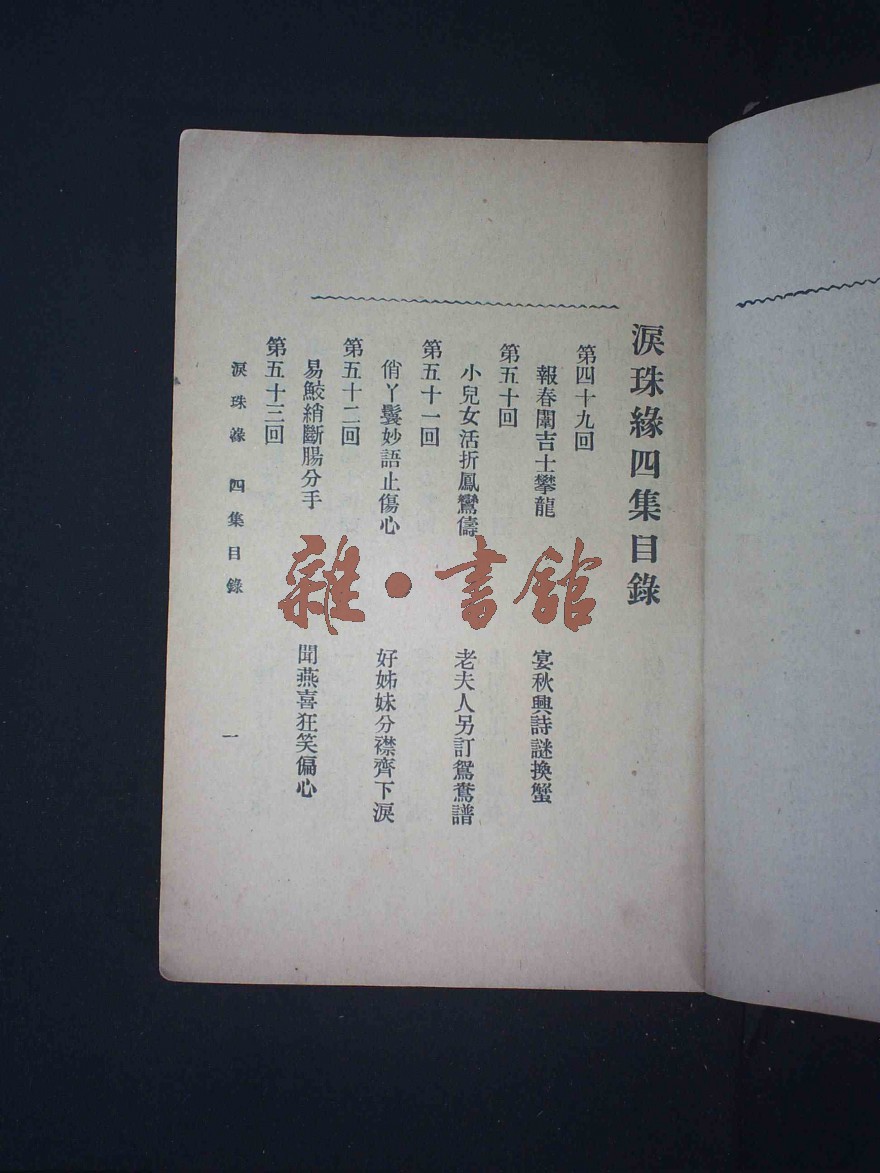 淚珠緣四集目錄
第四十九回
報春闈吉士攀龍　宴秋興詩謎換蟹
第五十回
小兒女活折鳳鸞儔　老夫人另訂鴛鴦譜
第五十一回
俏丫鬟妙語止傷心　好姊妹分襟齊下淚
第五十二回
易鮫綃斷腸分手　聞燕喜狂笑偏心
第五十三回
淚珠緣　四集目錄　一
雜·書館